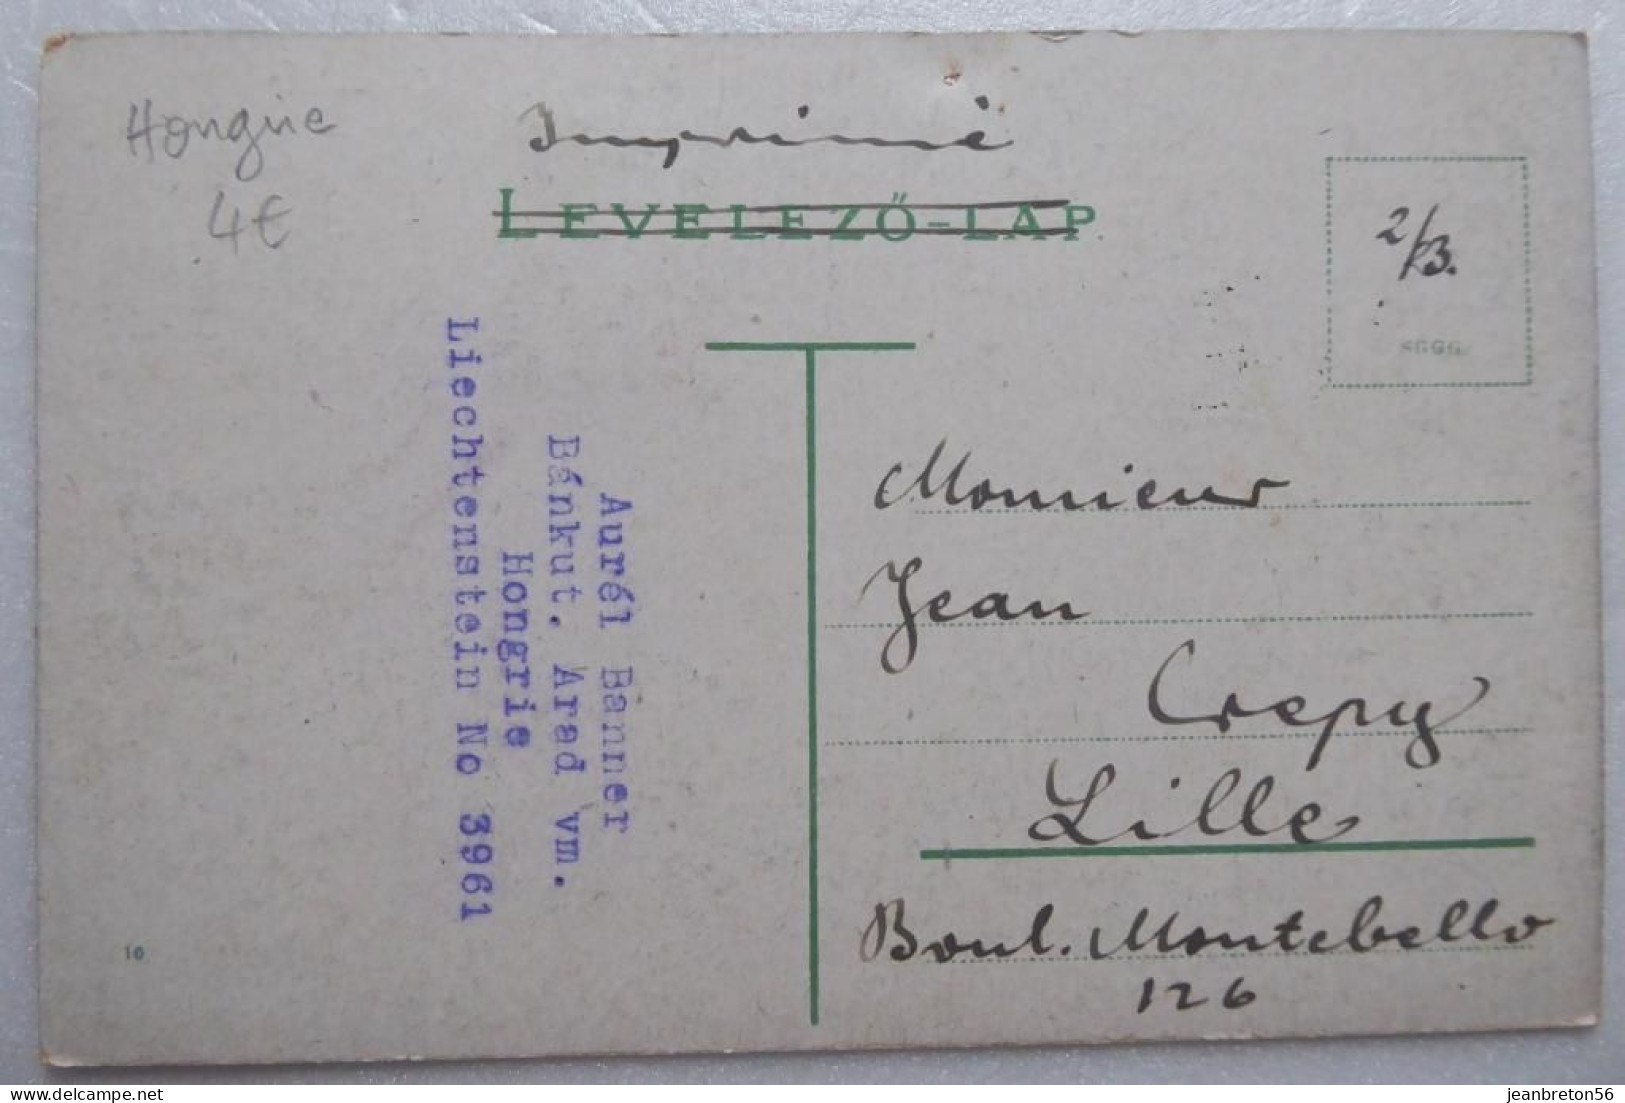 Hongrie
4€
Imprimé
LEVELEZŐ-LAP
2/3.
Aurél Banner
Bánkut. Arad vm.
Hongrie
Liechtenstein No 3961
Monsieur
Jean
Crepy
Lille
Boul. Montebello
126
10
jeanbreton56